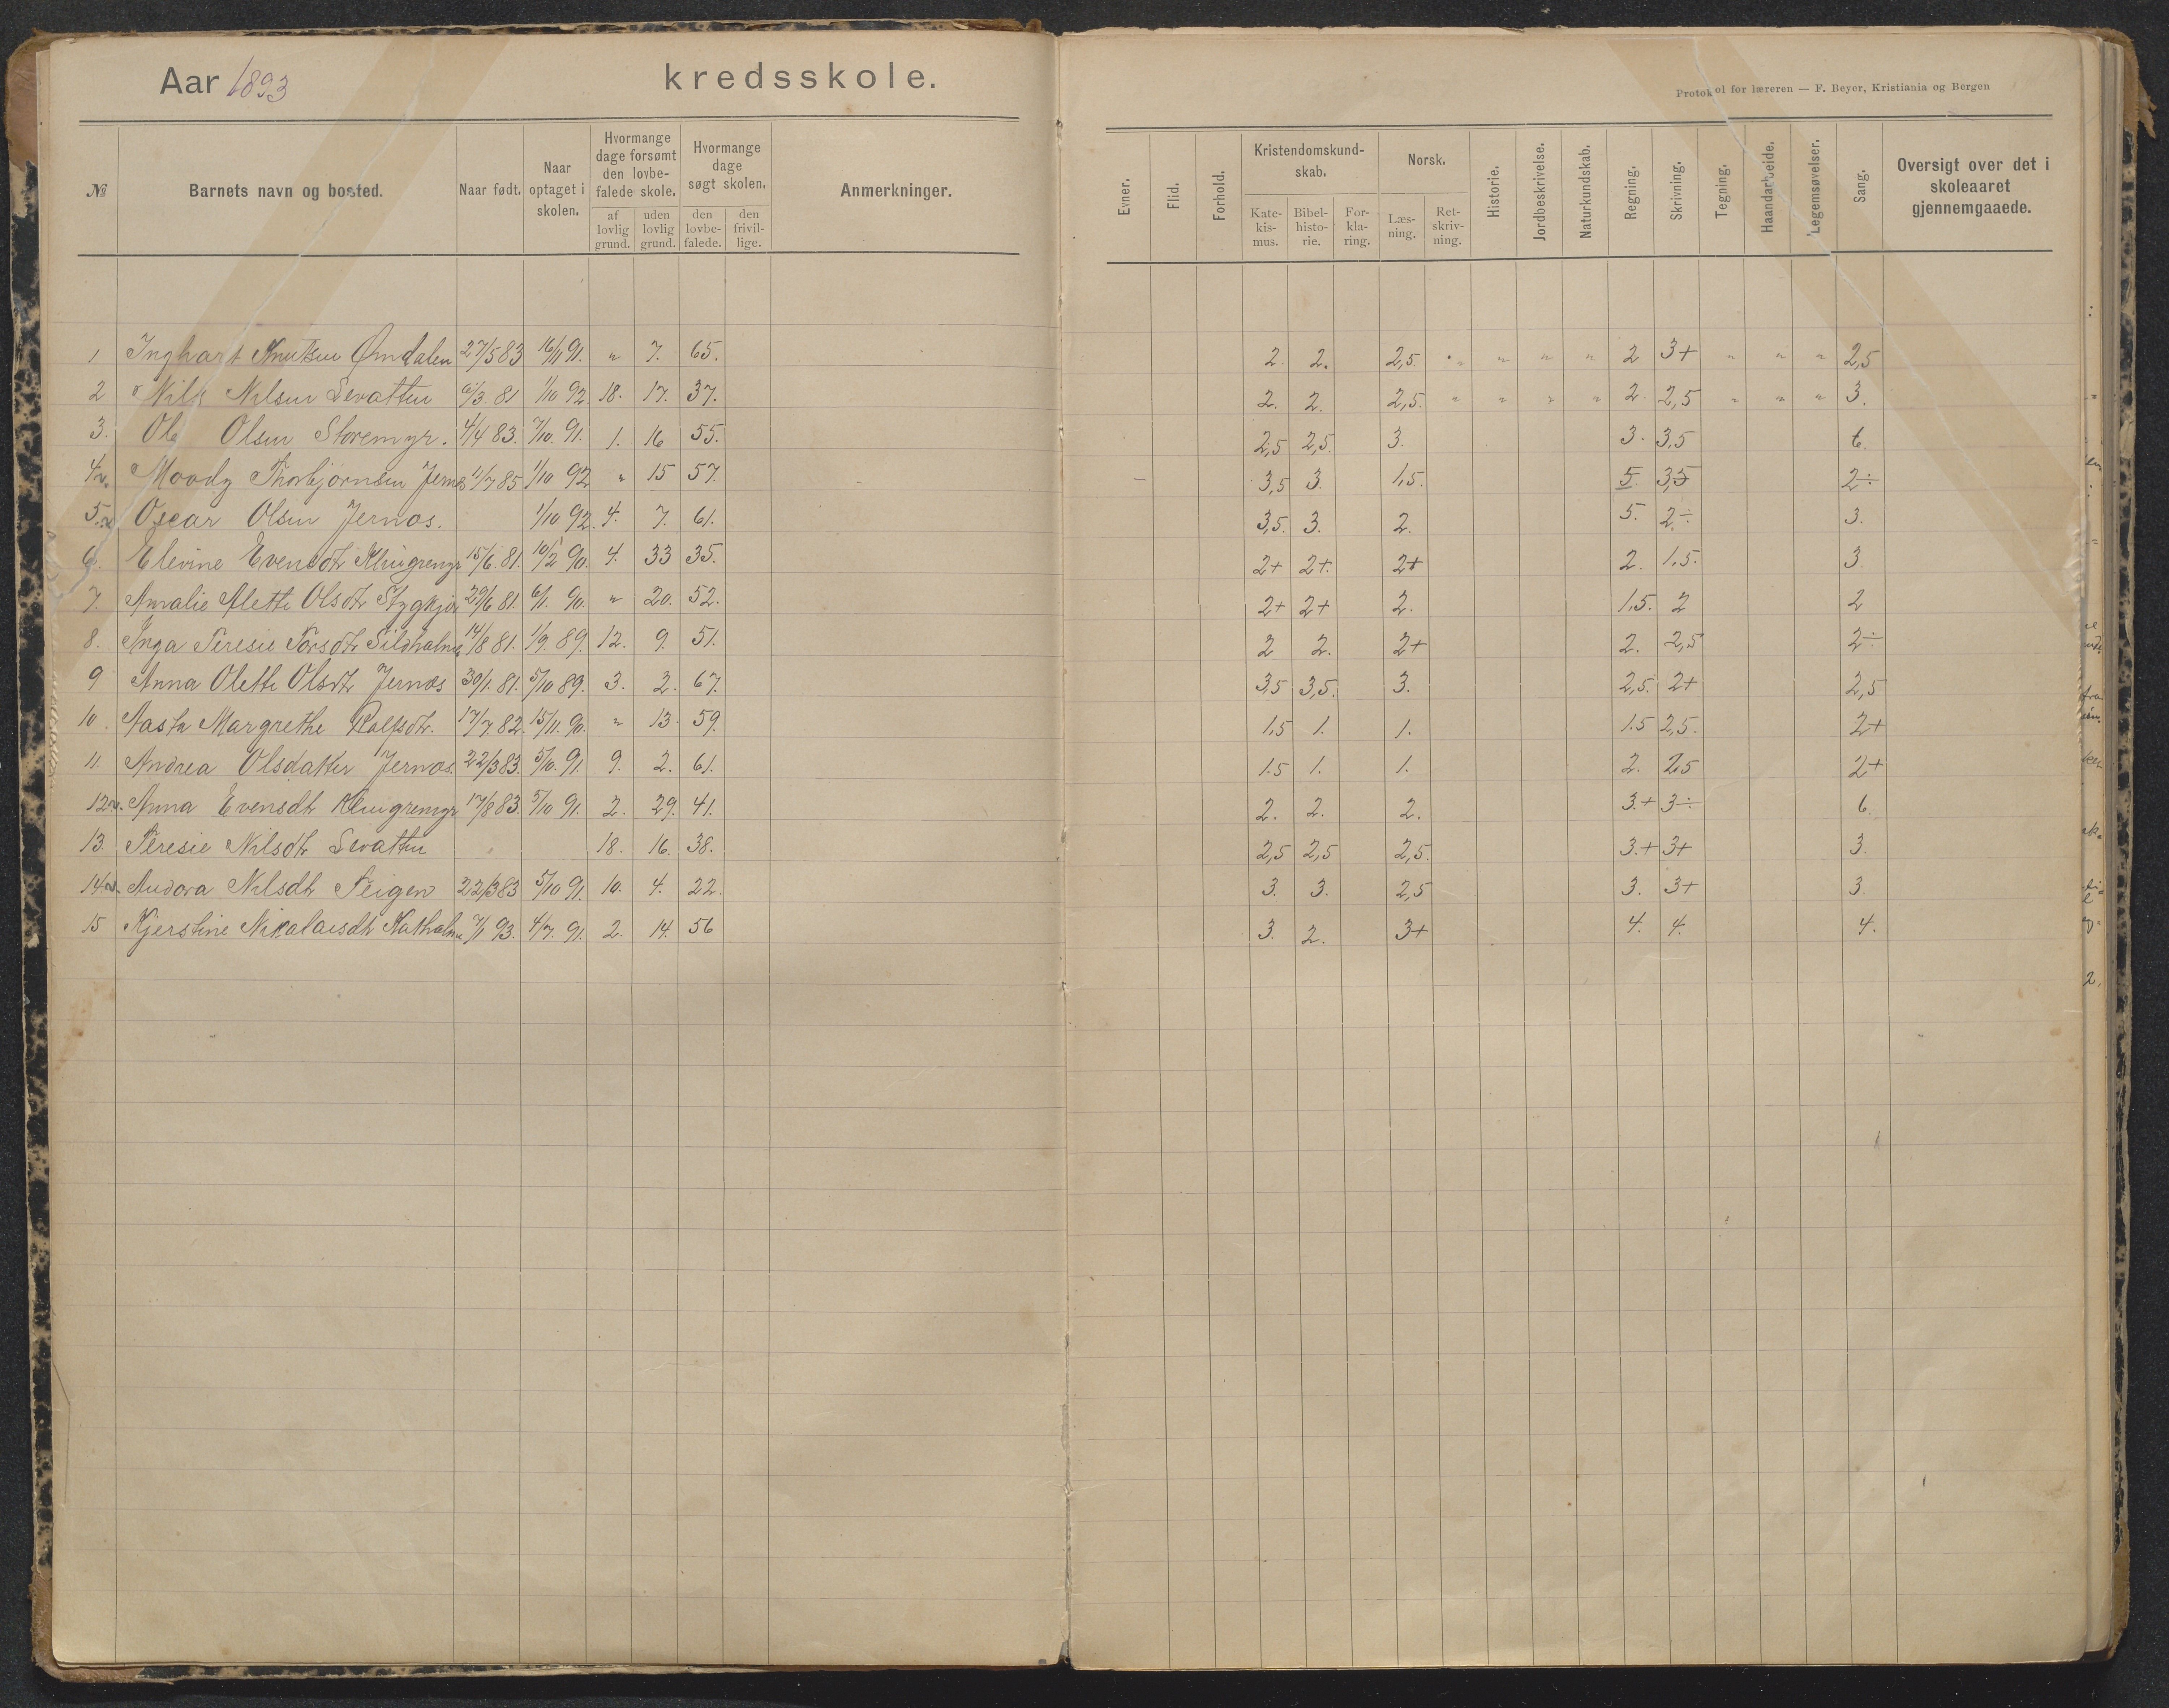 Aar 1893 kredsskole.
Protokol for læreren — F. Beyer, Kristiania og Bergen
№ Barnets navn og bosted. Naar født. Naar optaget i skolen. Hvormange dage forsømt den lovbefalede skole. af lovlig grund. uden lovlig grund. Hvormange dage søgt skolen. den lovbefalede. den frivillige. Anmerkninger. Evner. Flid. Forhold. Kristendomskundskab. Katekismus. Bibelhistorie. Forklaring. Norsk. Læsning. Retskrivning. Historie. Jordbeskrivelse. Naturkundskab. Regning. Skrivning. Tegning. Haandarbeide. Legemsøvelser. Sang. Oversigt over det i skoleaaret gjennemgaaede.
1 Inghart Knutsen Omdalen 27/5 83 16/11 91. " 7. 65. 2. 2. 2,5. " " " " 2 3+ " " " 2,5
2 Nils Nilsen Sevatten 6/3. 81 1/10 92. 18. 17. 37. 2. 2. 2,5. " " " " 2. 2,5 " " " 3.
3. Ole Olsen Storemyr. 4/4 83. 7/10. 91. 1. 16 55. 2,5 2,5. 3. 3. 3,5 6.
4. Moody Thorbjørnsen 11/7 85 1/10 92 " 15 57. 3,5 3. 1,5. 5. 3,5 2÷
5. Oscar Olsen Jernæs. 1/10 92. 4. 7. 61. 3,5. 3. 2. 5. 2÷ 3.
6. Elevine Evensdt 15/6. 81. 10/2 90. 4. 33 35. 2+ 2+. 2+ 2. 1,5. 3.
7. Amalie Alette Olsdt 29/6 81. 6/1. 90. " 20. 52. 2+ 2+ 2. 1,5. 2 2
8. Inga Teresie Torsdt 14/8 81. 1/9. 89. 12. 9. 51. 2 2. 2+ 2. 2,5 2÷
9 Anna Olette Olsdt Jernæs 30/1. 81. 5/10 89. 3. 2. 67. 3,5 3,5. 3. 2,5. 2+ 2,5
10. Aasta Margrethe Rolfsdt. 17/7. 82. 15/11. 90. " 13. 59. 1,5 1. 1. 1.5 2,5. 2+
11. Andrea Olsdatter Jernæs. 22/3 83. 5/10. 91. 9. 2. 61. 1.5 1. 1. 2. 2,5 2+
12. Anna Evensdt 17/8 83. 5/10 91. 2. 29. 41. 2. 2. 2. 3.+ 3÷ 6.
13. Teresie Nilsdt Sevatten 18. 16. 38. 2,5 2,5 2,5. 3.+ 3+ 3.
14. Andora Nilsdt Teigen 22/3 83 5/10 91. 10. 4. 22. 3. 3. 2,5 3. 3+ 3.
15 Kjerstine Nikolaisdt 7/1 93. 4/7. 91. 2. 14. 56 3. 2. 3+ 4. 4. 4.